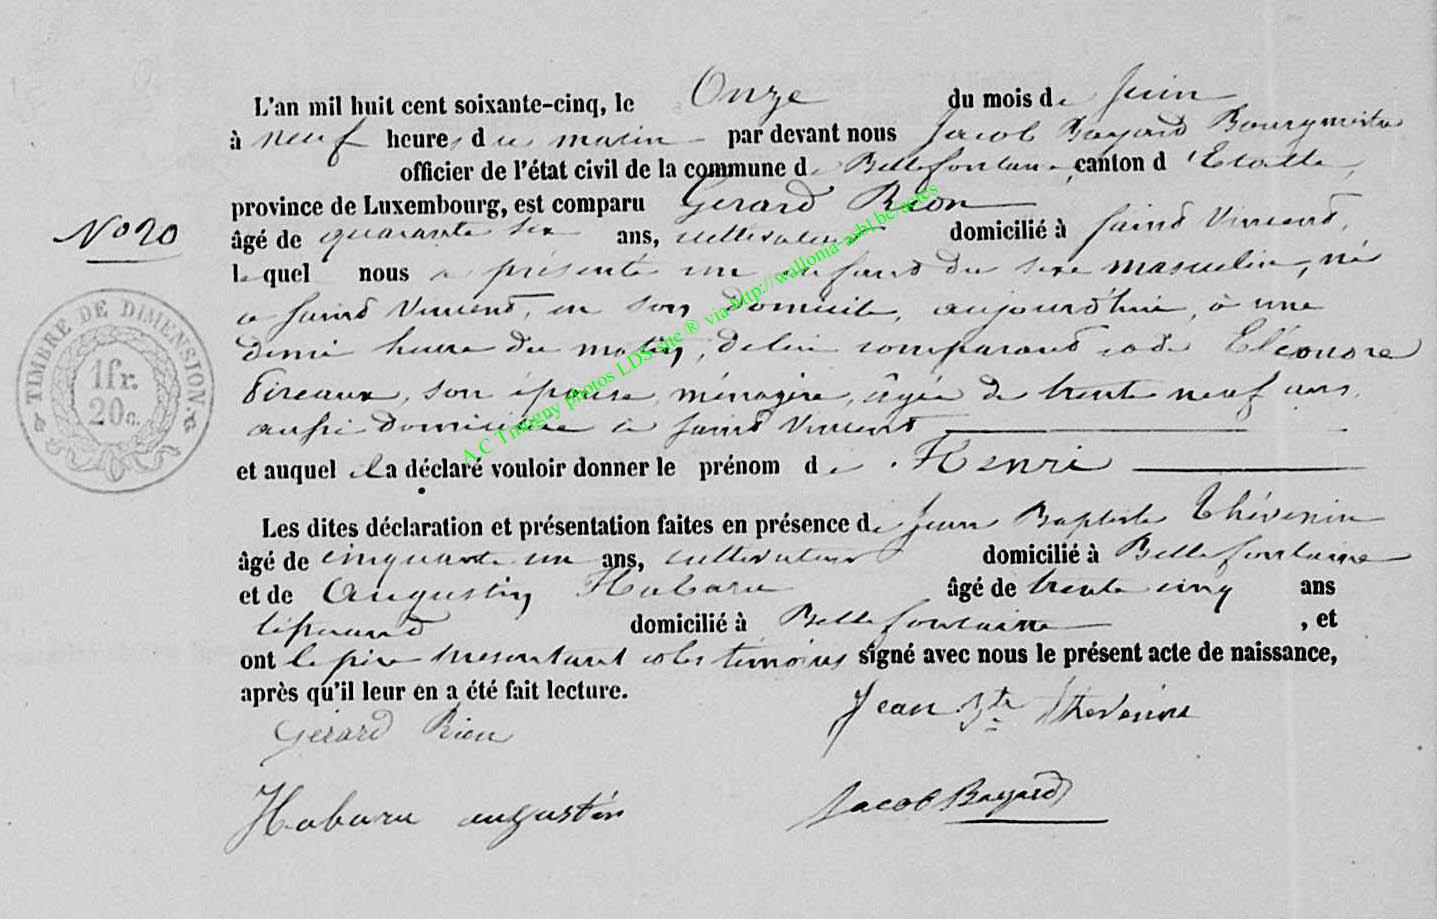 L'an mil huit cent soixante-cinq, le Onze du mois de Juin
à neuf heures du matin par devant nous Jacob Bayard Bourgmestre
officier de l'état civil de la commune de Bellefontaine, canton d'Etalle,
province de Luxembourg, est comparu Gérard Rion
No 20
âgé de quarante six ans, cultivateur domicilié à Saint Vincent,
lequel nous a présenté un enfant du sexe masculin, né
a Saint Vincent, en son domicile, aujourd'hui, à une
demi heure du matin, de lui comparant et de Eléonore
son épouse, ménagère, âgée de trente neuf ans
aussi domiciliée à Saint Vincent
et auquel il a déclaré vouloir donner le prénom de Henri
Les dites déclaration et présentation faites en présence de Jean Baptiste Thévenin
âgé de cinquante un ans, cultivateur domicilié à Bellefontaine
et de Augustin Habaru âgé de trente cinq ans
tisserand domicilié à Bellefontaine, et
ont le père et les témoins signé avec nous le présent acte de naissance,
après qu'il leur en a été fait lecture.
Jean Bte Thevenin
Gérard Rion
Habaru augustin
Jacob Bayard
TIMBRE DE DIMENSION
1 fr.
20 c.
A.C Tintigny photos LDS site ® via http://wallonia-asbl.be/actes